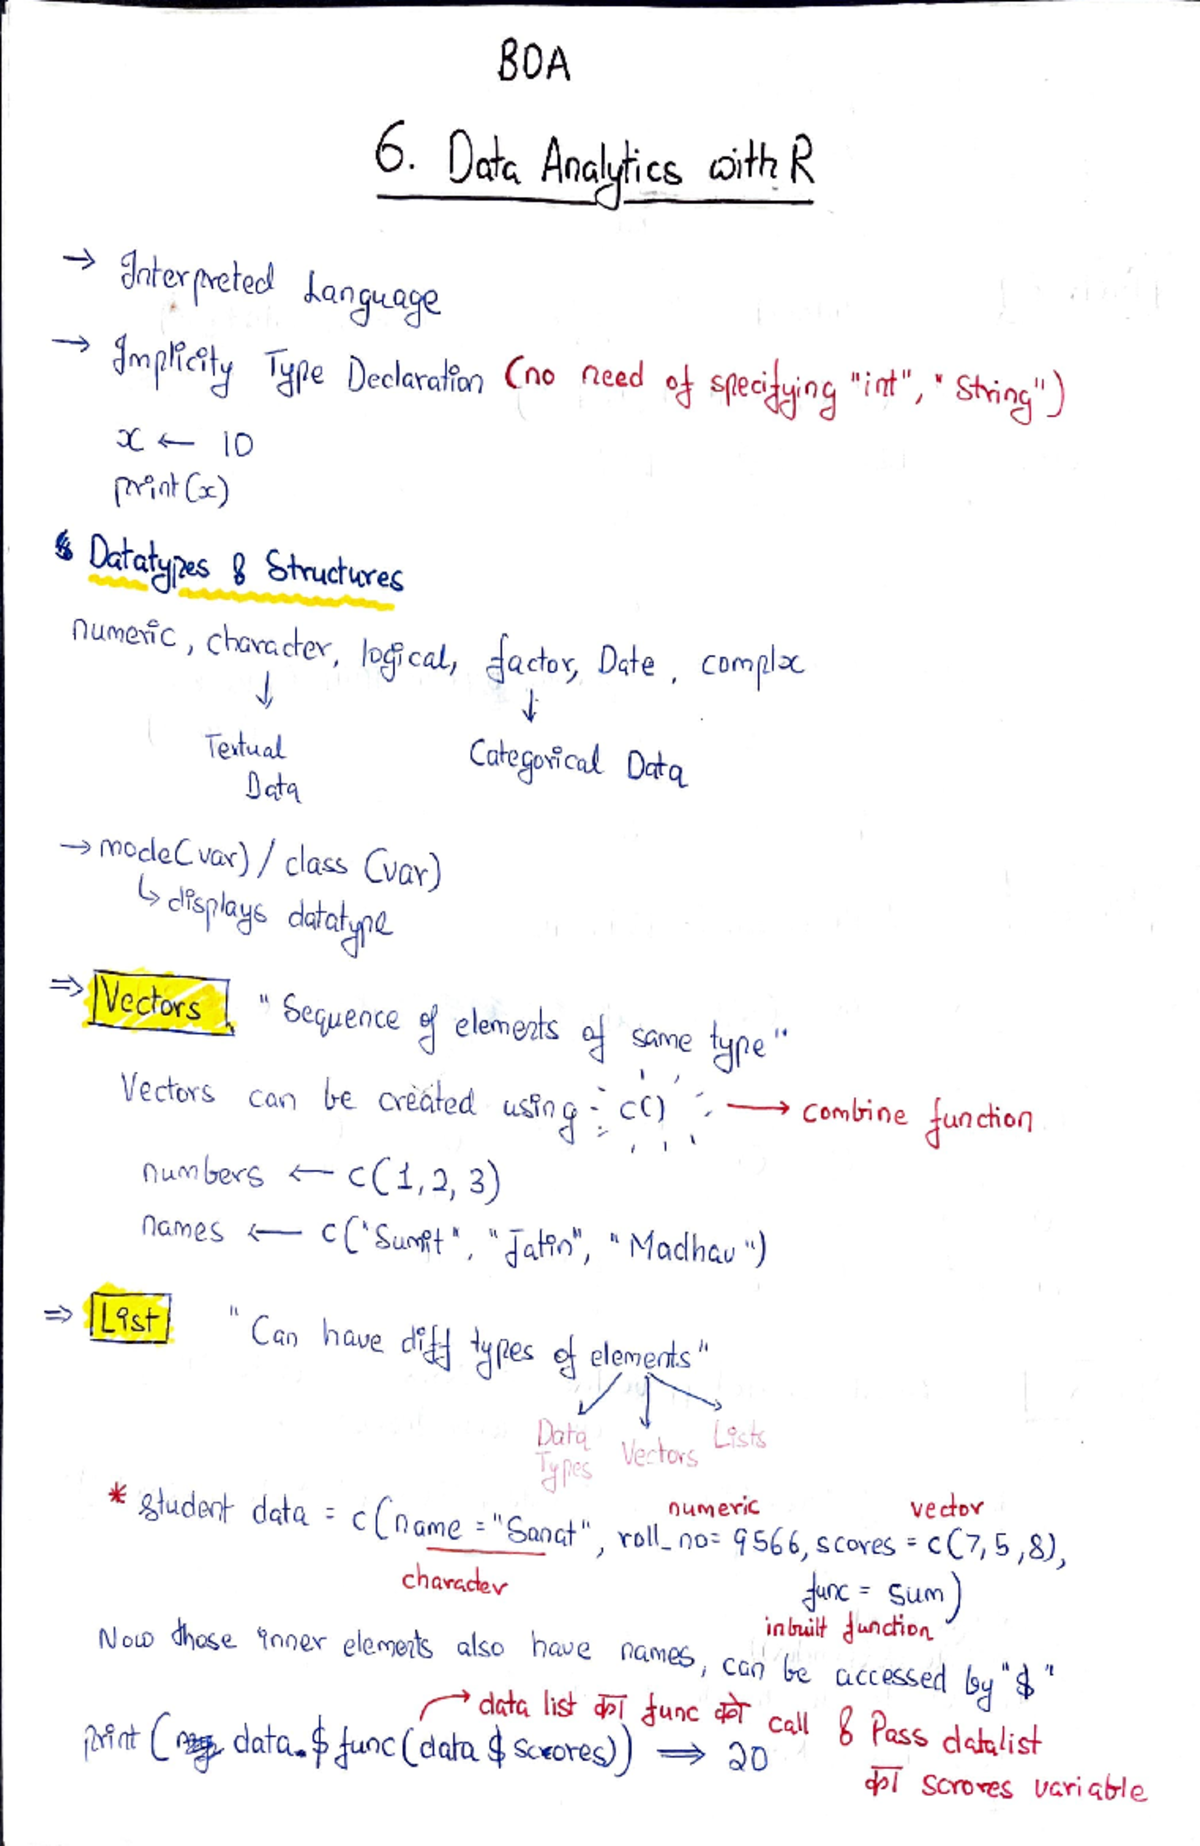 BDA
6. Data Analytics with R
→ Interpreted Language
→ Implicity Type Declaration (no need of specifying "int", "String")
x ← 10
print(x)
Datatypes & Structures
numeric, character, logical, factor, Date, complx
↓ ↓
Textual Data Categorical Data
→ mode(var) / class (var)
↳ displays datatype
⇒ Vectors "Sequence of elements of same type"
Vectors can be created using c() → combine function
numbers ← c(1, 2, 3)
names ← c("Sumit", "Jatin", "Madhav")
⇒ List "Can have diff types of elements"
Data Types Vectors Lists
numeric vector
* student data = c(name = "Sanat", roll_no = 9566, scores = c(7, 5, 8),
character func = sum)
inbuilt function
Now those inner elements also have names, can be accessed by "$"
→ data list का func को call & Pass datalist
print ( data.$ func (data $ scores)) ⇒ 20
का scrores variable